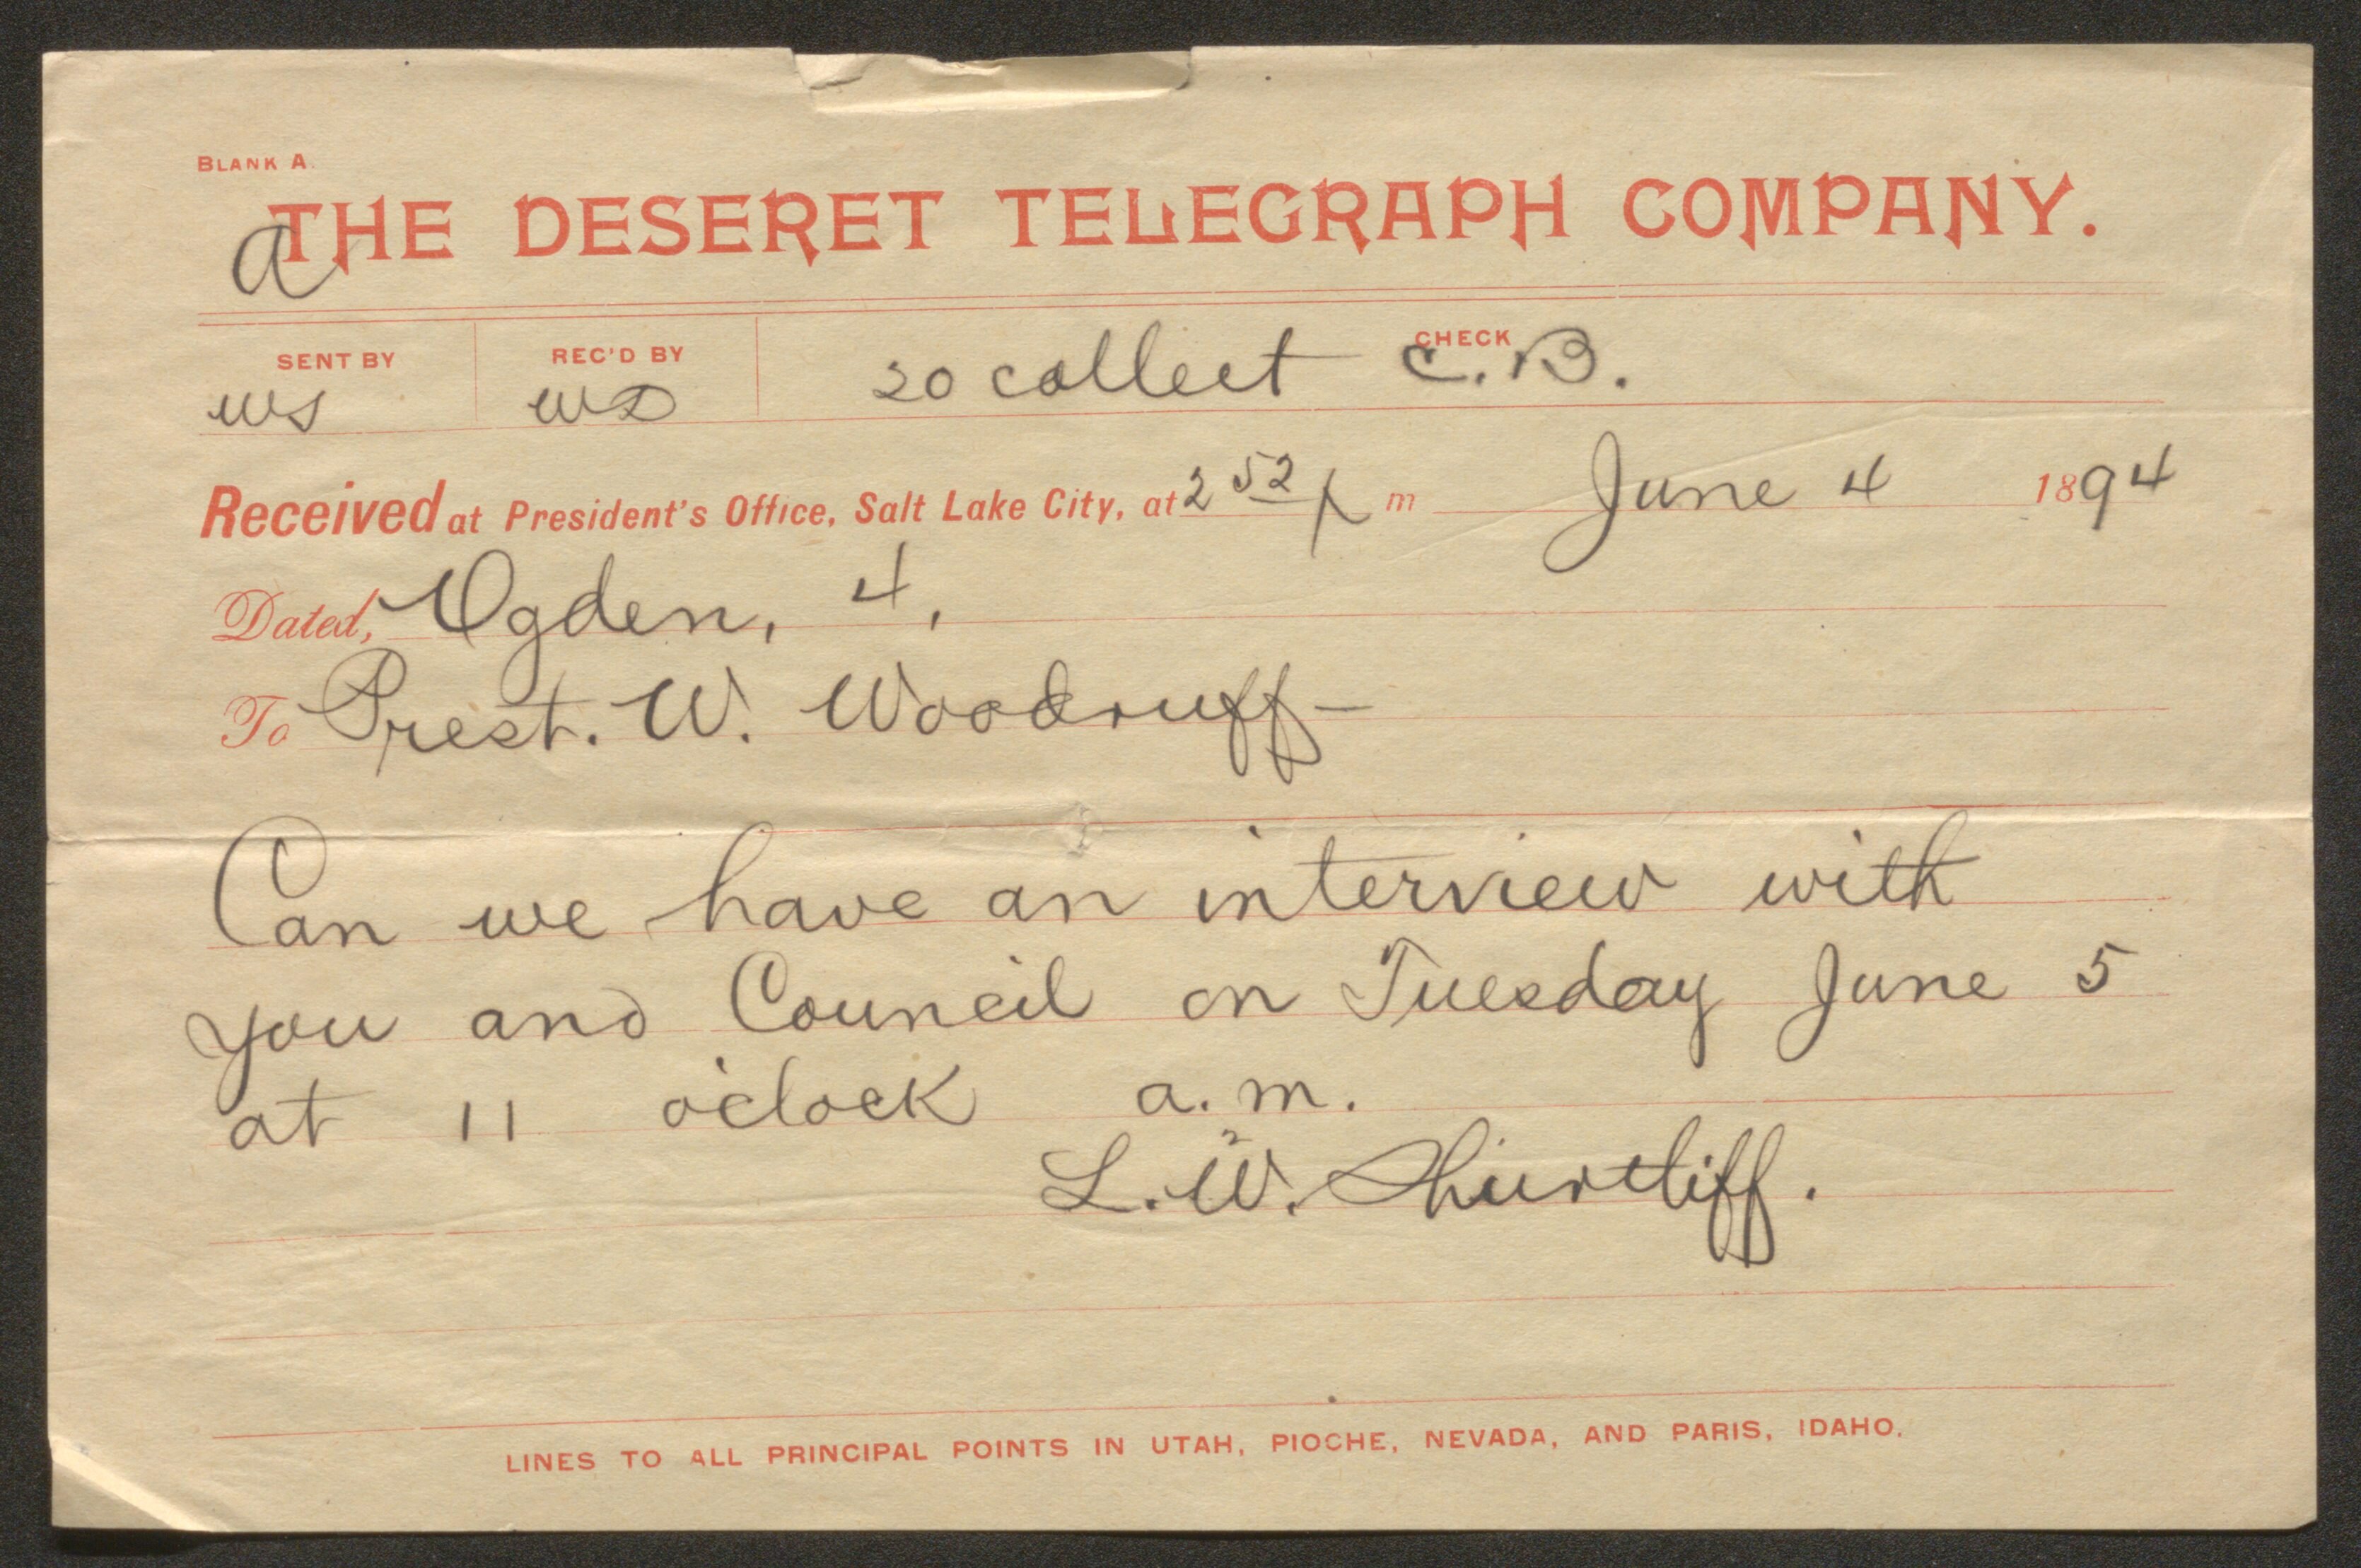 BLANK A.
THE DESERET TELEGRAPH COMPANY.
a
SENT BY REC'D BY CHECK
WS WD 20 collect C.B.
Received at President's Office, Salt Lake City, at 2 52 p m June 4 1894
Dated, Ogden, 4,
To Prest. W. Woodruff—
Can we have an interview with
you and Council on Tuesday June 5
at 11 o'clock a.m.
L. W. Shurtliff.
LINES TO ALL PRINCIPAL POINTS IN UTAH, PIOCHE, NEVADA, AND PARIS, IDAHO.